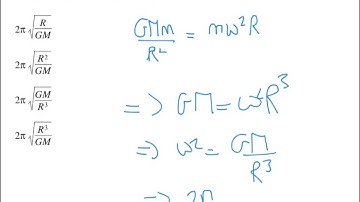 2π √(R/GM)
2π √(R²/GM)
2π √(GM/R³)
2π √(R³/GM)
GMm/R² = mω²R
=> GM = ω²R³
=> ω² = GM/R³
=> 2π